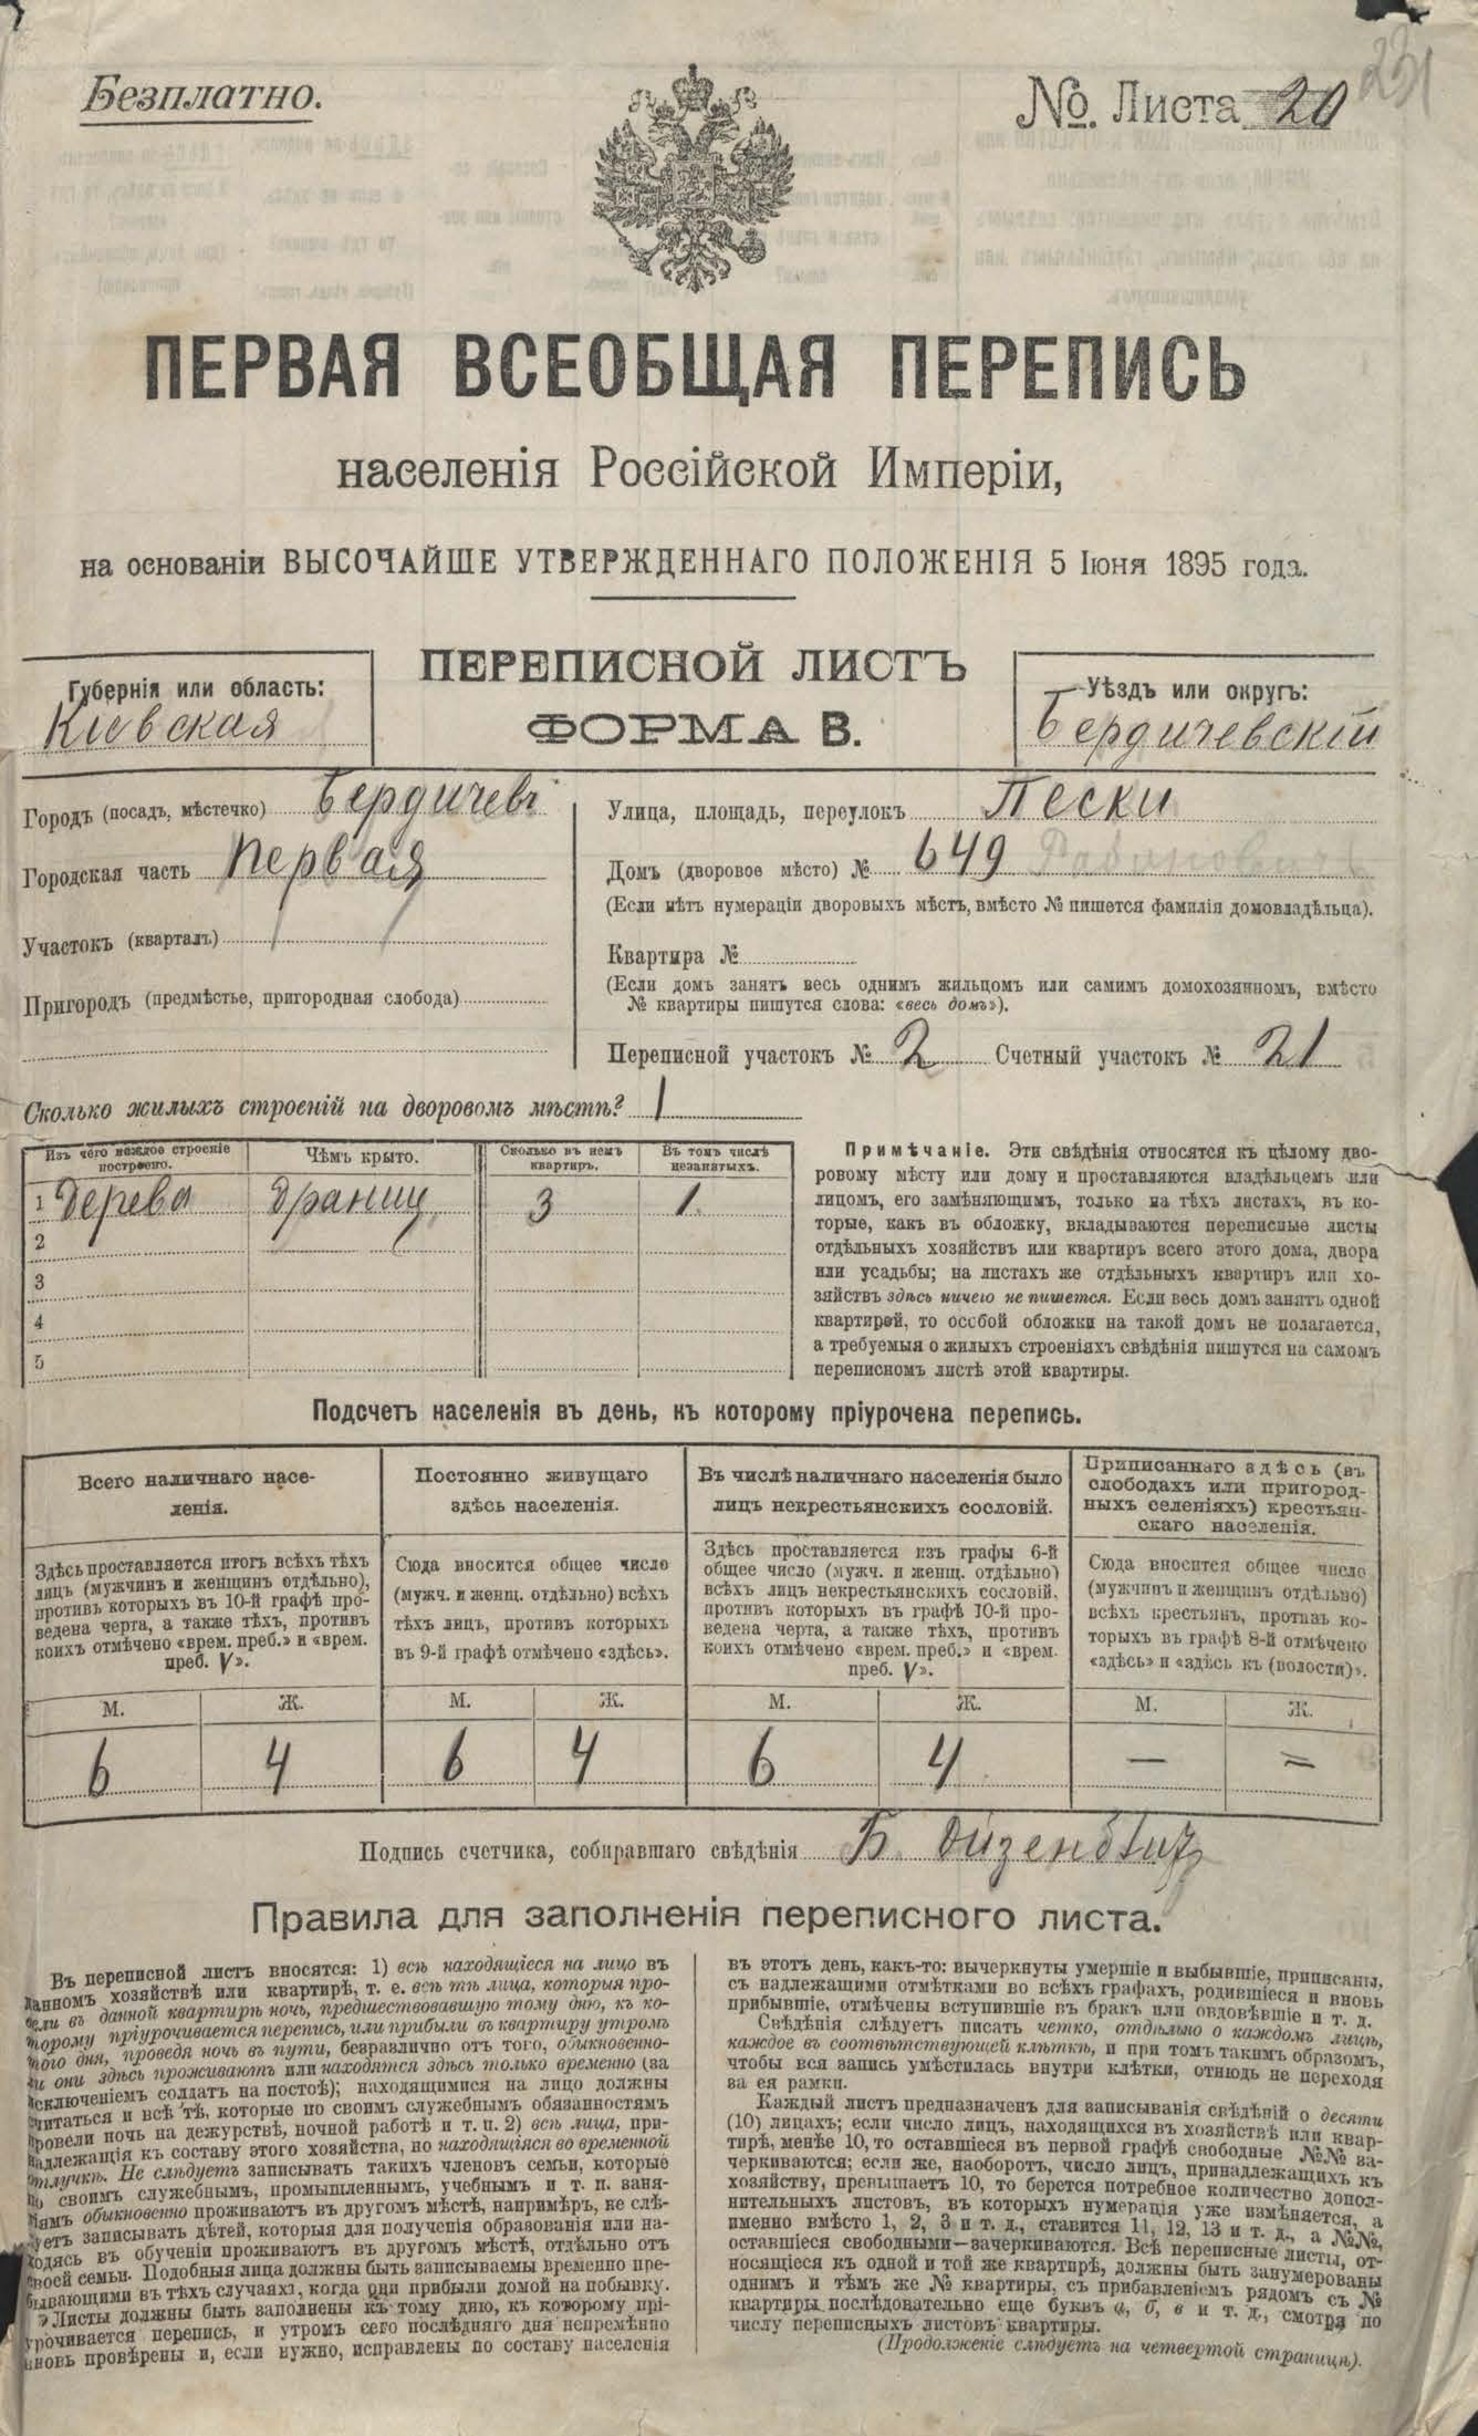 Безплатно.
№ Листа 20
231
ПЕРВАЯ ВСЕОБЩАЯ ПЕРЕПИСЬ
населенія Россійской Имперіи,
на основаніи ВЫСОЧАЙШЕ УТВЕРЖДЕННАГО ПОЛОЖЕНІЯ 5 Іюня 1895 года.
ПЕРЕПИСНОЙ ЛИСТЪ
ФОРМА В.
Губернія или область:
Кіевская
Уѣздъ или округъ:
Бердичевскій
Городъ (посадъ, мѣстечко) Бердичевъ
Городская часть Первая
Участокъ (кварталъ)
Пригородъ (предмѣстье, пригородная слобода)
Улица, площадь, переулокъ Пески
Домъ (дворовое мѣсто) № 649 Рабиновича
(Если нѣтъ нумераціи дворовыхъ мѣстъ, вмѣсто № пишется фамилія домовладѣльца).
Квартира №
(Если домъ занятъ весь однимъ жильцомъ или самимъ домохозяиномъ, вмѣсто
№ квартиры пишутся слова: «весь домъ»).
Переписной участокъ № 2 Счетный участокъ № 21
Сколько жилыхъ строеній на дворовомъ мѣстѣ? 1
Изъ чего каждое строеніе
построено.
Чѣмъ крыто.
Сколько въ немъ
квартиръ.
Въ томъ числѣ
незанятыхъ.
1 Дерева Драниц 3 1.
2
3
4
5
Примѣчаніе. Эти свѣдѣнія относятся къ цѣлому дво-
ровому мѣсту или дому и проставляются владѣльцемъ или
лицомъ, его замѣняющимъ, только на тѣхъ листахъ, въ ко-
торые, какъ въ обложку, вкладываются переписные листы
отдѣльныхъ хозяйствъ или квартиръ всего этого дома, двора
или усадьбы; на листахъ же отдѣльныхъ квартиръ или хо-
зяйствъ здѣсь ничего не пишется. Если весь домъ занятъ одной
квартирой, то особой обложки на такой домъ не полагается,
а требуемыя о жилыхъ строеніяхъ свѣдѣнія пишутся на самомъ
переписномъ листѣ этой квартиры.
Подсчетъ населенія въ день, къ которому пріурочена перепись.
Всего наличнаго насе-
ленія.
Здѣсь проставляется итогъ всѣхъ тѣхъ
лицъ (мужчинъ и женщинъ отдѣльно),
противъ которыхъ въ 10-й графѣ про-
ведена черта, а также тѣхъ, противъ
коихъ отмѣчено «врем. преб.» и «врем.
преб. V».
Постоянно живущаго
здѣсь населенія.
Сюда вносится общее число
(мужч. и женщ. отдѣльно) всѣхъ
тѣхъ лицъ, противъ которыхъ
въ 9-й графѣ отмѣчено «здѣсь».
Въ числѣ наличнаго населенія было
лицъ некрестьянскихъ сословій.
Здѣсь проставляется изъ графы 6-й
общее число (мужч. и женщ. отдѣльно)
всѣхъ лицъ некрестьянскихъ сословій,
противъ которыхъ въ графѣ 10-й про-
ведена черта, а также тѣхъ, противъ
коихъ отмѣчено «врем. преб.» и «врем.
преб. V».
Приписаннаго здѣсь (въ
слободахъ или пригород-
ныхъ селеніяхъ) крестьян-
скаго населенія.
Сюда вносится общее число
(мужчинъ и женщинъ отдѣльно)
всѣхъ крестьянъ, противъ ко-
торыхъ въ графѣ 8-й отмѣчено
«здѣсь» и «здѣсь къ (волости)».
М. Ж. М. Ж. М. Ж. М. Ж.
6 4 6 4 6 4 — =
Подпись счетчика, собиравшаго свѣдѣнія Б.
Правила для заполненія переписного листа.
Въ переписной листъ вносятся: 1) всѣ находящіеся на лицо въ
данномъ хозяйствѣ или квартирѣ, т. е. всѣ тѣ лица, которыя про-
вели въ данной квартирѣ ночь, предшествовавшую тому дню, къ ко-
торому пріурочивается перепись, или прибыли въ квартиру утромъ
того дня, проведя ночь въ пути, безразлично отъ того, обыкновенно-
ли они здѣсь проживаютъ или находятся здѣсь только временно (за
исключеніемъ солдатъ на постоѣ); находящимися на лицо должны
считаться и всѣ тѣ, которые по своимъ служебнымъ обязанностямъ
провели ночь на дежурствѣ, ночной работѣ и т. п. 2) всѣ лица, при-
надлежащія къ составу этого хозяйства, но находящіяся во временной
отлучкѣ. Не слѣдуетъ записывать такихъ членовъ семьи, которые
по своимъ служебнымъ, промышленнымъ, учебнымъ и т. п. заня-
тіямъ обыкновенно проживаютъ въ другомъ мѣстѣ, напримѣръ, не слѣ-
дуетъ записывать дѣтей, которыя для полученія образованія или на-
ходясь въ обученіи проживаютъ въ другомъ мѣстѣ, отдѣльно отъ
своей семьи. Подобныя лица должны быть записываемы временно пре-
бывающими въ тѣхъ случаяхъ, когда они прибыли домой на побывку.
Листы должны быть заполнены къ тому дню, къ которому прі-
урочивается перепись, и утромъ сего послѣдняго дня непремѣнно
вновь провѣрены и, если нужно, исправлены по составу населенія
въ этотъ день, какъ-то: вычеркнуты умершіе и выбывшіе, приписаны,
съ надлежащими отмѣтками во всѣхъ графахъ, родившіеся и вновь
прибывшіе, отмѣчены вступившіе въ бракъ или овдовѣвшіе и т. д.
Свѣдѣнія слѣдуетъ писать четко, отдѣльно о каждомъ лицѣ,
каждое въ соотвѣтствующей клѣткѣ, и при томъ такимъ образомъ,
чтобы вся запись умѣстилась внутри клѣтки, отнюдь не переходя
за ея рамки.
Каждый листъ предназначенъ для записыванія свѣдѣній о десяти
(10) лицахъ; если число лицъ, находящихся въ хозяйствѣ или квар-
тирѣ, менѣе 10, то оставшіеся въ первой графѣ свободные №№ за-
черкиваются; если же, наоборотъ, число лицъ, принадлежащихъ къ
хозяйству, превышаетъ 10, то берется потребное количество допол-
нительныхъ листовъ, въ которыхъ нумерація уже измѣняется, а
именно вмѣсто 1, 2, 3 и т. д., ставится 11, 12, 13 и т. д., а №№,
оставшіеся свободными—зачеркиваются. Всѣ переписные листы, от-
носящіеся къ одной и той же квартирѣ, должны быть занумерованы
однимъ и тѣмъ же № квартиры, съ прибавленіемъ рядомъ съ №
квартиры послѣдовательно еще буквъ а, б, в и т. д., смотря по
числу переписныхъ листовъ квартиры.
(Продолженіе слѣдуетъ на четвертой страницѣ).